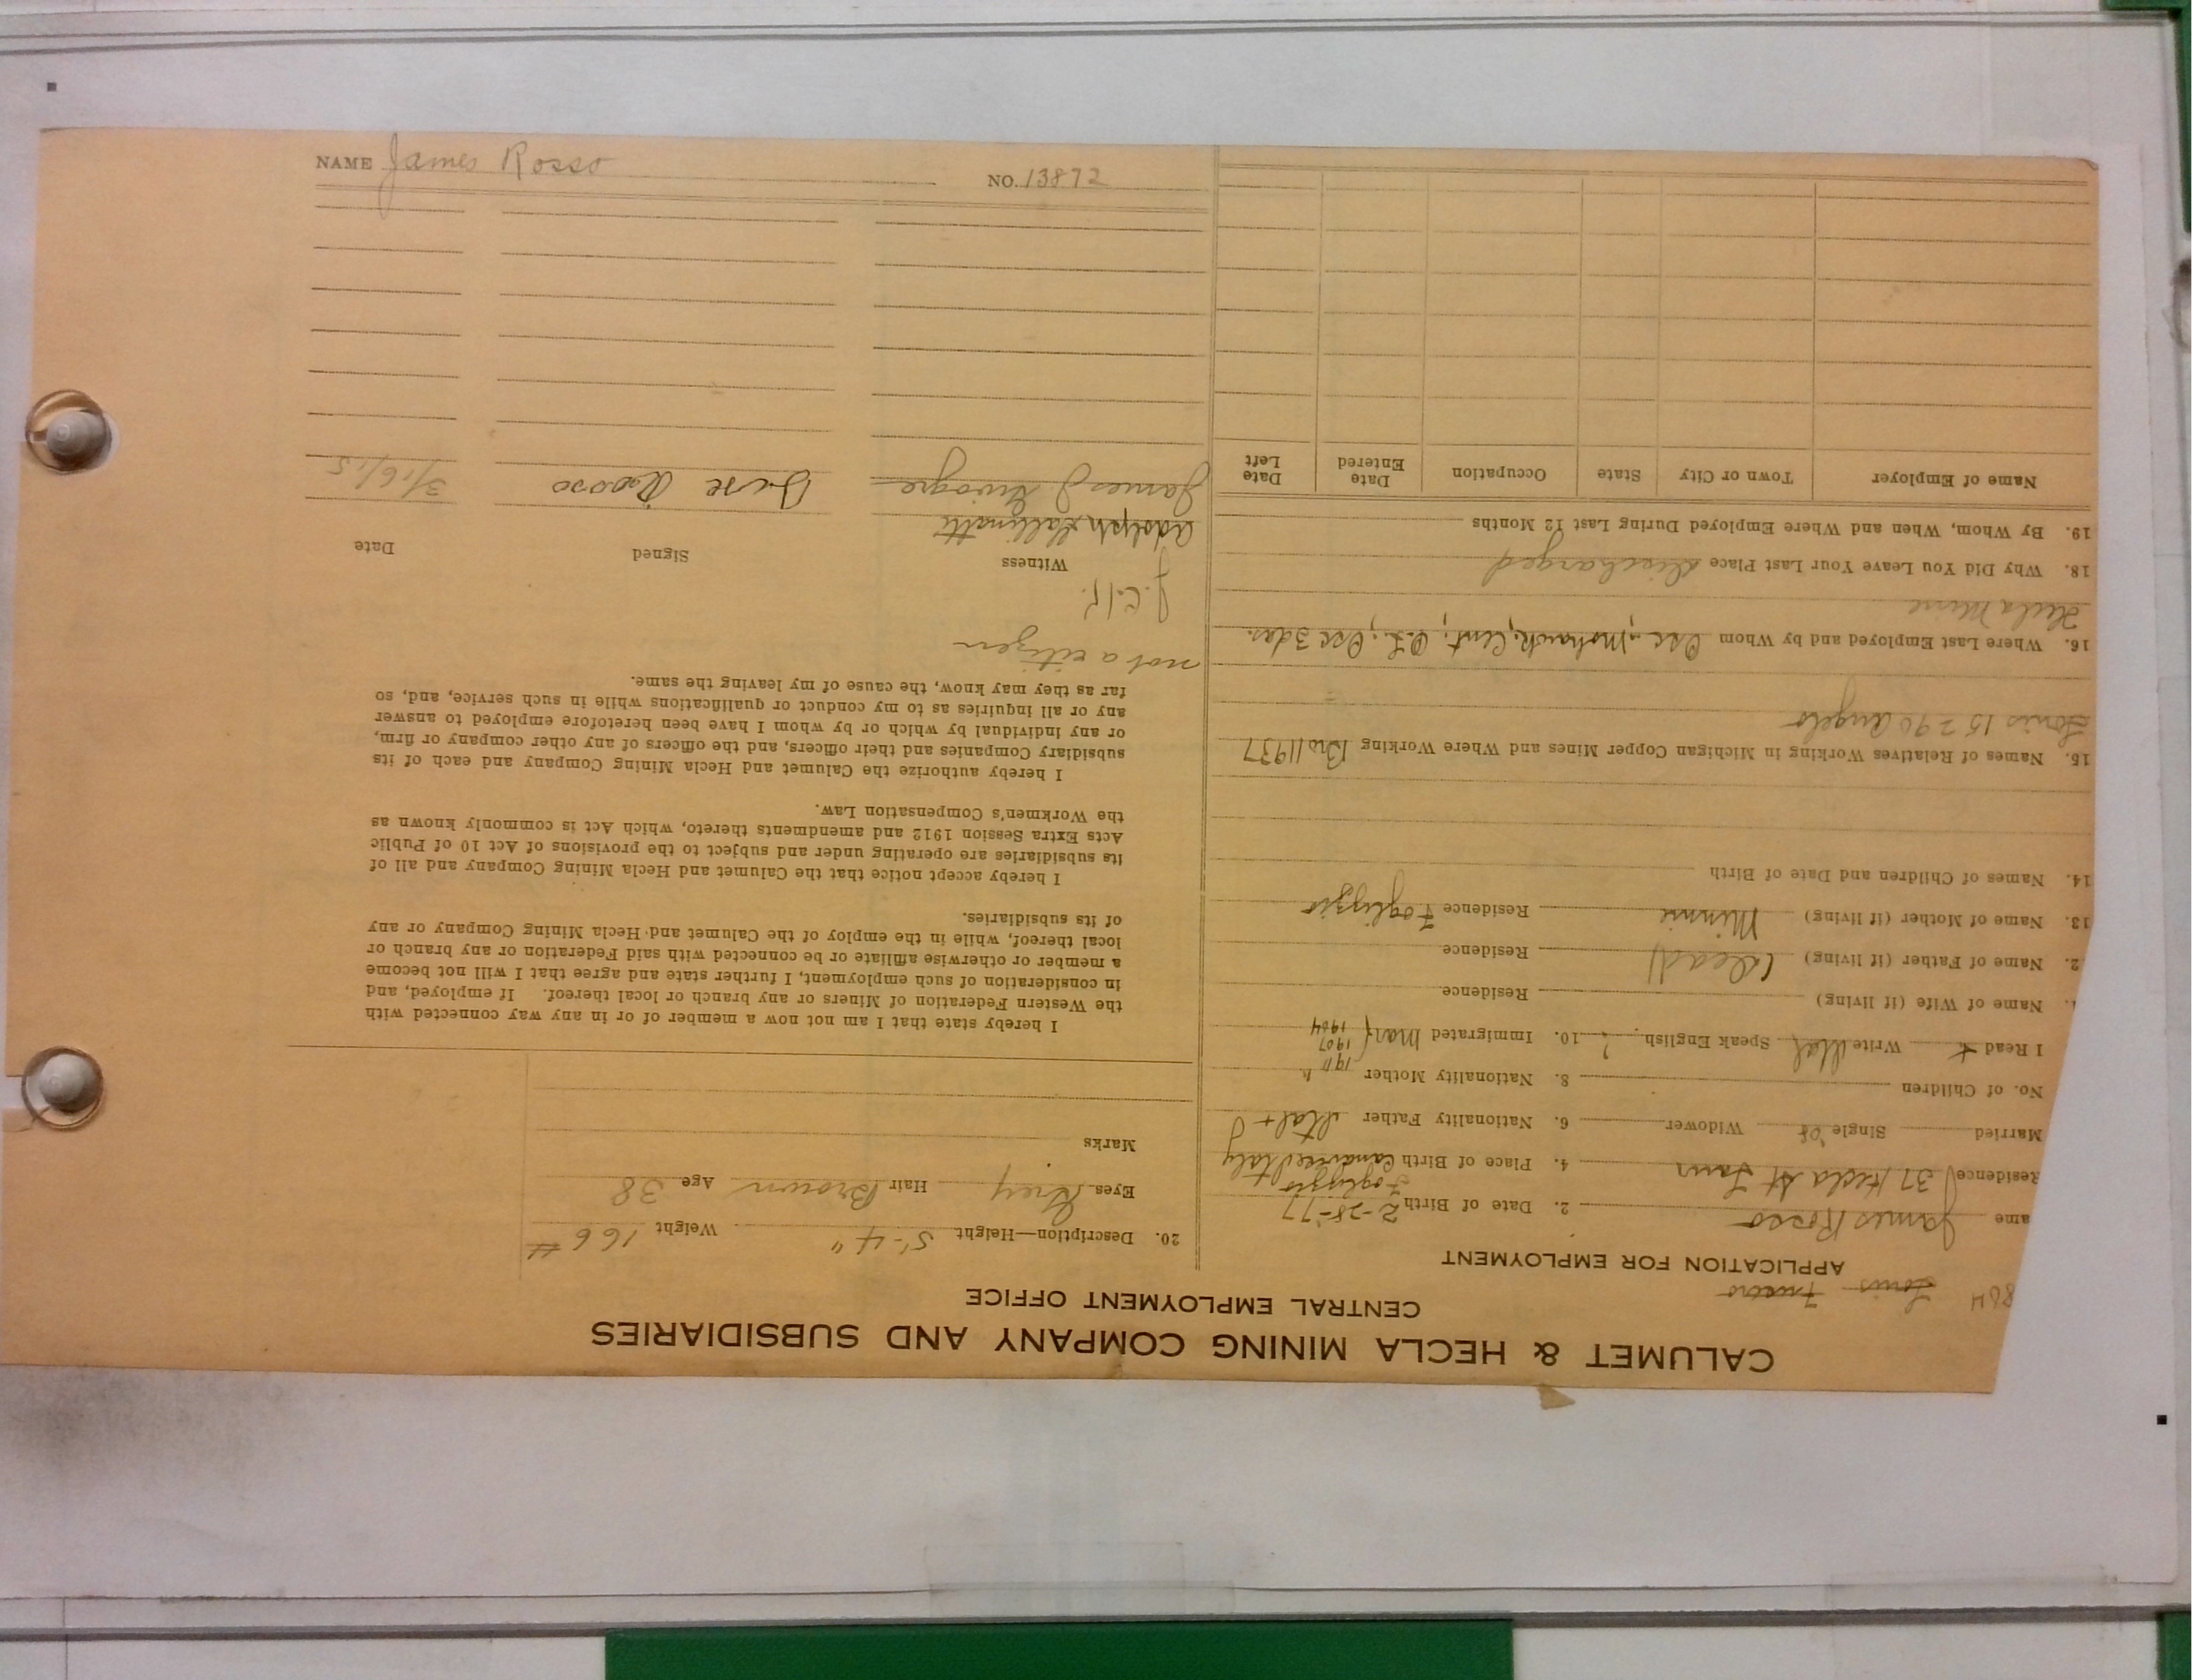 CALUMET & HECLA MINING COMPANY AND SUBSIDIARIES
CENTRAL EMPLOYMENT OFFICE
864 Louis
APPLICATION FOR EMPLOYMENT
ame James Rosso 2. Date of Birth 2-28-77
Foglizzo
Residence 37 Hecla St 4. Place of Birth Italy
Married Single Widower 6. Nationality Father Ital +
No. of Children 8. Nationality Mother "
1911
1907
I Read x Write Ital Speak English 10. Immigrated Mar 1904
Name of Wife (if living) Residence
2. Name of Father (if living) (Dead) Residence
13. Name of Mother (if living) Minnie Residence Foglizzo
14. Names of Children and Date of Birth
15. Names of Relatives Working in Michigan Copper Mines and Where Working Bro 11937
Louis 15290 Angelo
16. Where Last Employed and by Whom Osc - Mohawk, Cent; O.L; Osc 3 das.
Hecla Mine
18. Why Did You Leave Your Last Place Discharged
19. By Whom, When and Where Employed During Last 12 Months
Name of Employer Town or City State Occupation Date Entered Date Left
20. Description—Height 5'-4" Weight 166 #
Eyes Grey Hair Brown Age 38
Marks
I hereby state that I am not now a member of or in any way connected with
the Western Federation of Miners or any branch or local thereof. If employed, and
in consideration of such employment, I further state and agree that I will not become
a member or otherwise affiliate or be connected with said Federation or any branch or
local thereof, while in the employ of the Calumet and Hecla Mining Company or any
of its subsidiaries.
I hereby accept notice that the Calumet and Hecla Mining Company and all of
its subsidiaries are operating under and subject to the provisions of Act 10 of Public
Acts Extra Session 1912 and amendments thereto, which Act is commonly known as
the Workmen's Compensation Law.
I hereby authorize the Calumet and Hecla Mining Company and each of its
subsidiary Companies and their officers, and the officers of any other company or firm,
or any individual by which or by whom I have been heretofore employed to answer
any or all inquiries as to my conduct or qualifications while in such service, and, so
far as they may know, the cause of my leaving the same.
not a citizen
Witness Signed Date
Adolph
James J Rosso 3/16/15
NAME James Rosso NO. 13872